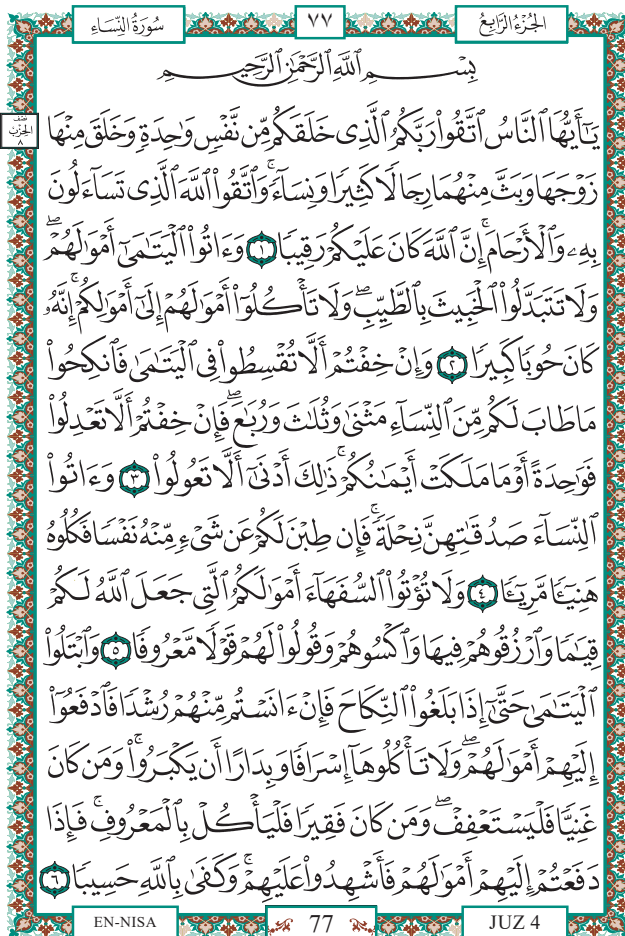 الجُزْءُ الرَّابِعُ
٧٧
سُورَةُ النِّسَاءِ
بِسْمِ ٱللَّهِ ٱلرَّحْمَٰنِ ٱلرَّحِيمِ
نصف
الحزب
٨
يَٰٓأَيُّهَا ٱلنَّاسُ ٱتَّقُوا۟ رَبَّكُمُ ٱلَّذِى خَلَقَكُم مِّن نَّفْسٍ وَٰحِدَةٍ وَخَلَقَ مِنْهَا
زَوْجَهَا وَبَثَّ مِنْهُمَا رِجَالًا كَثِيرًا وَنِسَآءً ۚ وَٱتَّقُوا۟ ٱللَّهَ ٱلَّذِى تَسَآءَلُونَ
بِهِۦ وَٱلْأَرْحَامَ ۚ إِنَّ ٱللَّهَ كَانَ عَلَيْكُمْ رَقِيبًا ١ وَءَاتُوا۟ ٱلْيَتَٰمَىٰٓ أَمْوَٰلَهُمْ ۖ
وَلَا تَتَبَدَّلُوا۟ ٱلْخَبِيثَ بِٱلطَّيِّبِ ۖ وَلَا تَأْكُلُوٓا۟ أَمْوَٰلَهُمْ إِلَىٰٓ أَمْوَٰلِكُمْ ۚ إِنَّهُۥ
كَانَ حُوبًا كَبِيرًا ٢ وَإِنْ خِفْتُمْ أَلَّا تُقْسِطُوا۟ فِى ٱلْيَتَٰمَىٰ فَٱنكِحُوا۟
مَا طَابَ لَكُم مِّنَ ٱلنِّسَآءِ مَثْنَىٰ وَثُلَٰثَ وَرُبَٰعَ ۖ فَإِنْ خِفْتُمْ أَلَّا تَعْدِلُوا۟
فَوَٰحِدَةً أَوْ مَا مَلَكَتْ أَيْمَٰنُكُمْ ۚ ذَٰلِكَ أَدْنَىٰٓ أَلَّا تَعُولُوا۟ ٣ وَءَاتُوا۟
ٱلنِّسَآءَ صَدُقَٰتِهِنَّ نِحْلَةً ۚ فَإِن طِبْنَ لَكُمْ عَن شَىْءٍ مِّنْهُ نَفْسًا فَكُلُوهُ
هَنِيٓـًٔا مَّرِيٓـًٔا ٤ وَلَا تُؤْتُوا۟ ٱلسُّفَهَآءَ أَمْوَٰلَكُمُ ٱلَّتِى جَعَلَ ٱللَّهُ لَكُمْ
قِيَٰمًا وَٱرْزُقُوهُمْ فِيهَا وَٱكْسُوهُمْ وَقُولُوا۟ لَهُمْ قَوْلًا مَّعْرُوفًا ٥ وَٱبْتَلُوا۟
ٱلْيَتَٰمَىٰ حَتَّىٰٓ إِذَا بَلَغُوا۟ ٱلنِّكَاحَ فَإِنْ ءَانَسْتُم مِّنْهُمْ رُشْدًا فَٱدْفَعُوٓا۟
إِلَيْهِمْ أَمْوَٰلَهُمْ ۖ وَلَا تَأْكُلُوهَآ إِسْرَافًا وَبِدَارًا أَن يَكْبَرُوا۟ ۚ وَمَن كَانَ
غَنِيًّا فَلْيَسْتَعْفِفْ ۖ وَمَن كَانَ فَقِيرًا فَلْيَأْكُلْ بِٱلْمَعْرُوفِ ۚ فَإِذَا
دَفَعْتُمْ إِلَيْهِمْ أَمْوَٰلَهُمْ فَأَشْهِدُوا۟ عَلَيْهِمْ ۚ وَكَفَىٰ بِٱللَّهِ حَسِيبًا ٦
EN-NISA
77
JUZ 4